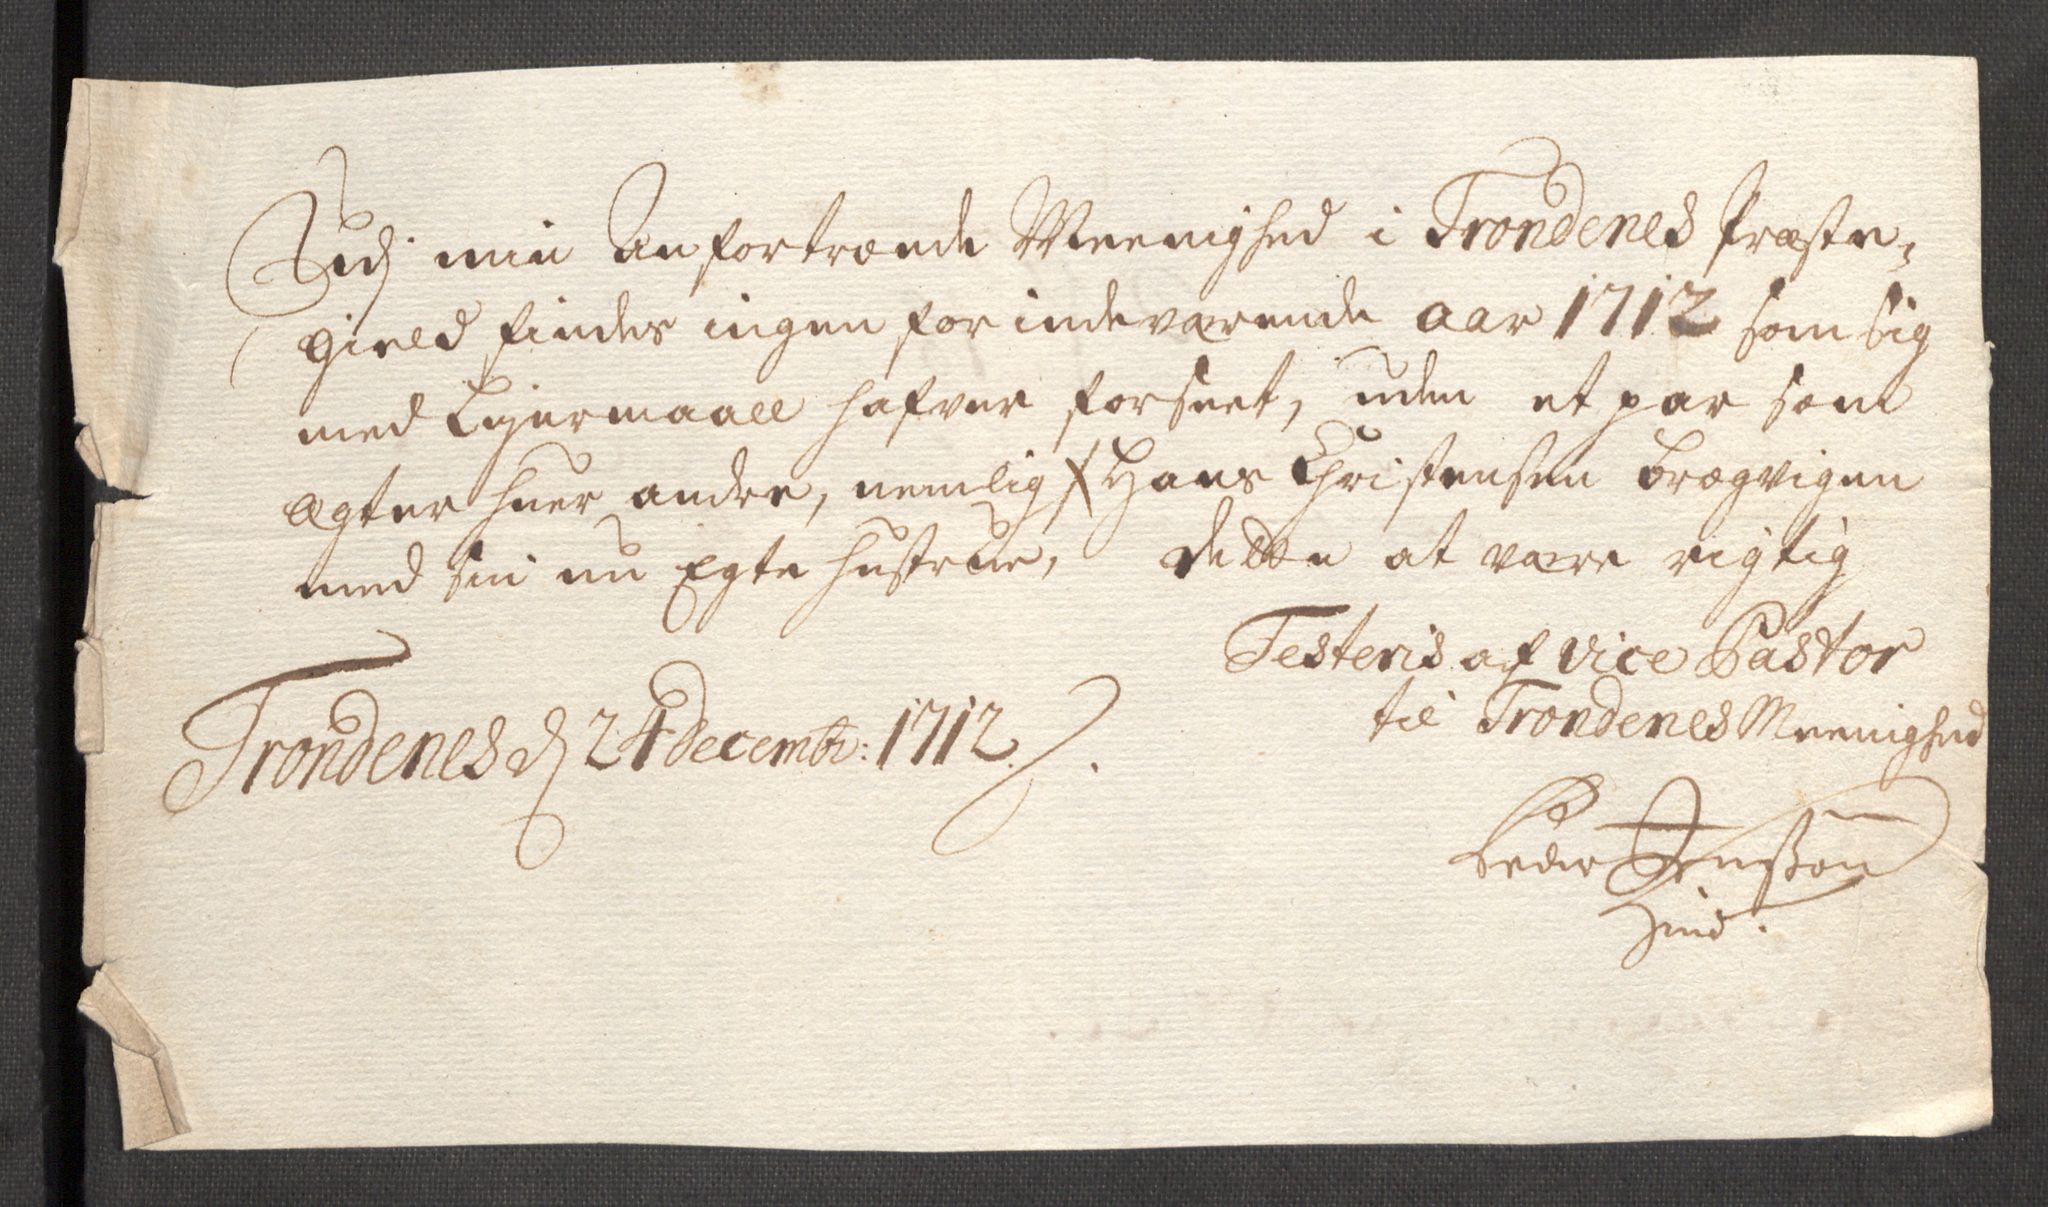 Udj min Anfortroede Meenighed i Trondenes Præste,
gield findes ingen for indeværende aar 1712 som sig
med Lejermaall hafver forseet, uden et par som
ægter huer andre, nemlig Hans Christensen Brægvigen
med sin nu Egte hustrue, dette at være rigtig
Testeris af vice Pastor
til Trondenes Meenighed
Trondenes d 24 decembr: 1712.
Peder Jenßøn
Hind.